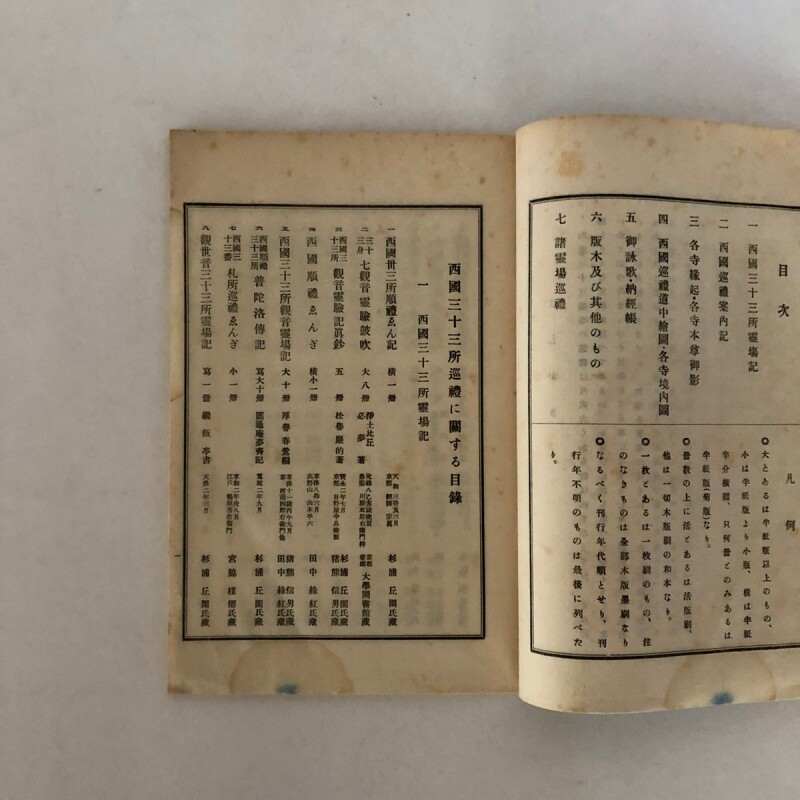 目次
一 西國三十三所靈場記
二 西國巡禮案內記
三 各寺緣起・各寺本尊御影
四 西國巡禮道中繪圖・各寺境內圖
五 御詠歌・納經帳
六 版木及び其他のもの
七 諸靈場巡禮
凡例
◎大とあるは半紙版以上のもの、
小は半紙版より小版、橫は半紙
半分橫綴、只何册とのみあるは
半紙版(菊版)なり。
◎册數の上に活とあるは活版刷、
他は一切木版刷の和本なり。
◎一枚とあるは一枚刷のもの、註
のなきものは全部木版墨刷なり
◎なるべく刊行年代順とせり、刊
行年不明のものは最後に列べた
り。
西國三十三所巡禮に關する目錄
一 西國三十三所靈場記
一 西國卅三所順禮ゑん記 橫一册 杉浦丘園氏藏
二 三十三身 七觀音靈驗鼓吹 大八册 淨土比丘必夢著 大學圖書館藏
三 西國三十三所 觀音靈驗記眞鈔 五册 松譽巖的著 寶永二年七月 杉浦丘園氏藏 猪熊信男氏藏
四 西國順禮ゑんぎ 橫小一册 田中綠紅氏藏
五 西國三十三所觀音靈場記 大十册 厚譽春鶯編 猪熊信男氏藏 田中綠紅氏藏
六 西國順禮三十三所 普陀洛傳記 寫大十册 圓通庵夢齋記 寬延二年九月 杉浦丘園氏藏
七 西國三十三番 札所巡禮ゑんぎ 小一册 宮脇楳僊氏藏
八 觀世音三十三所靈場記 寫一册 亭書 天保二年三月 杉浦丘園氏藏